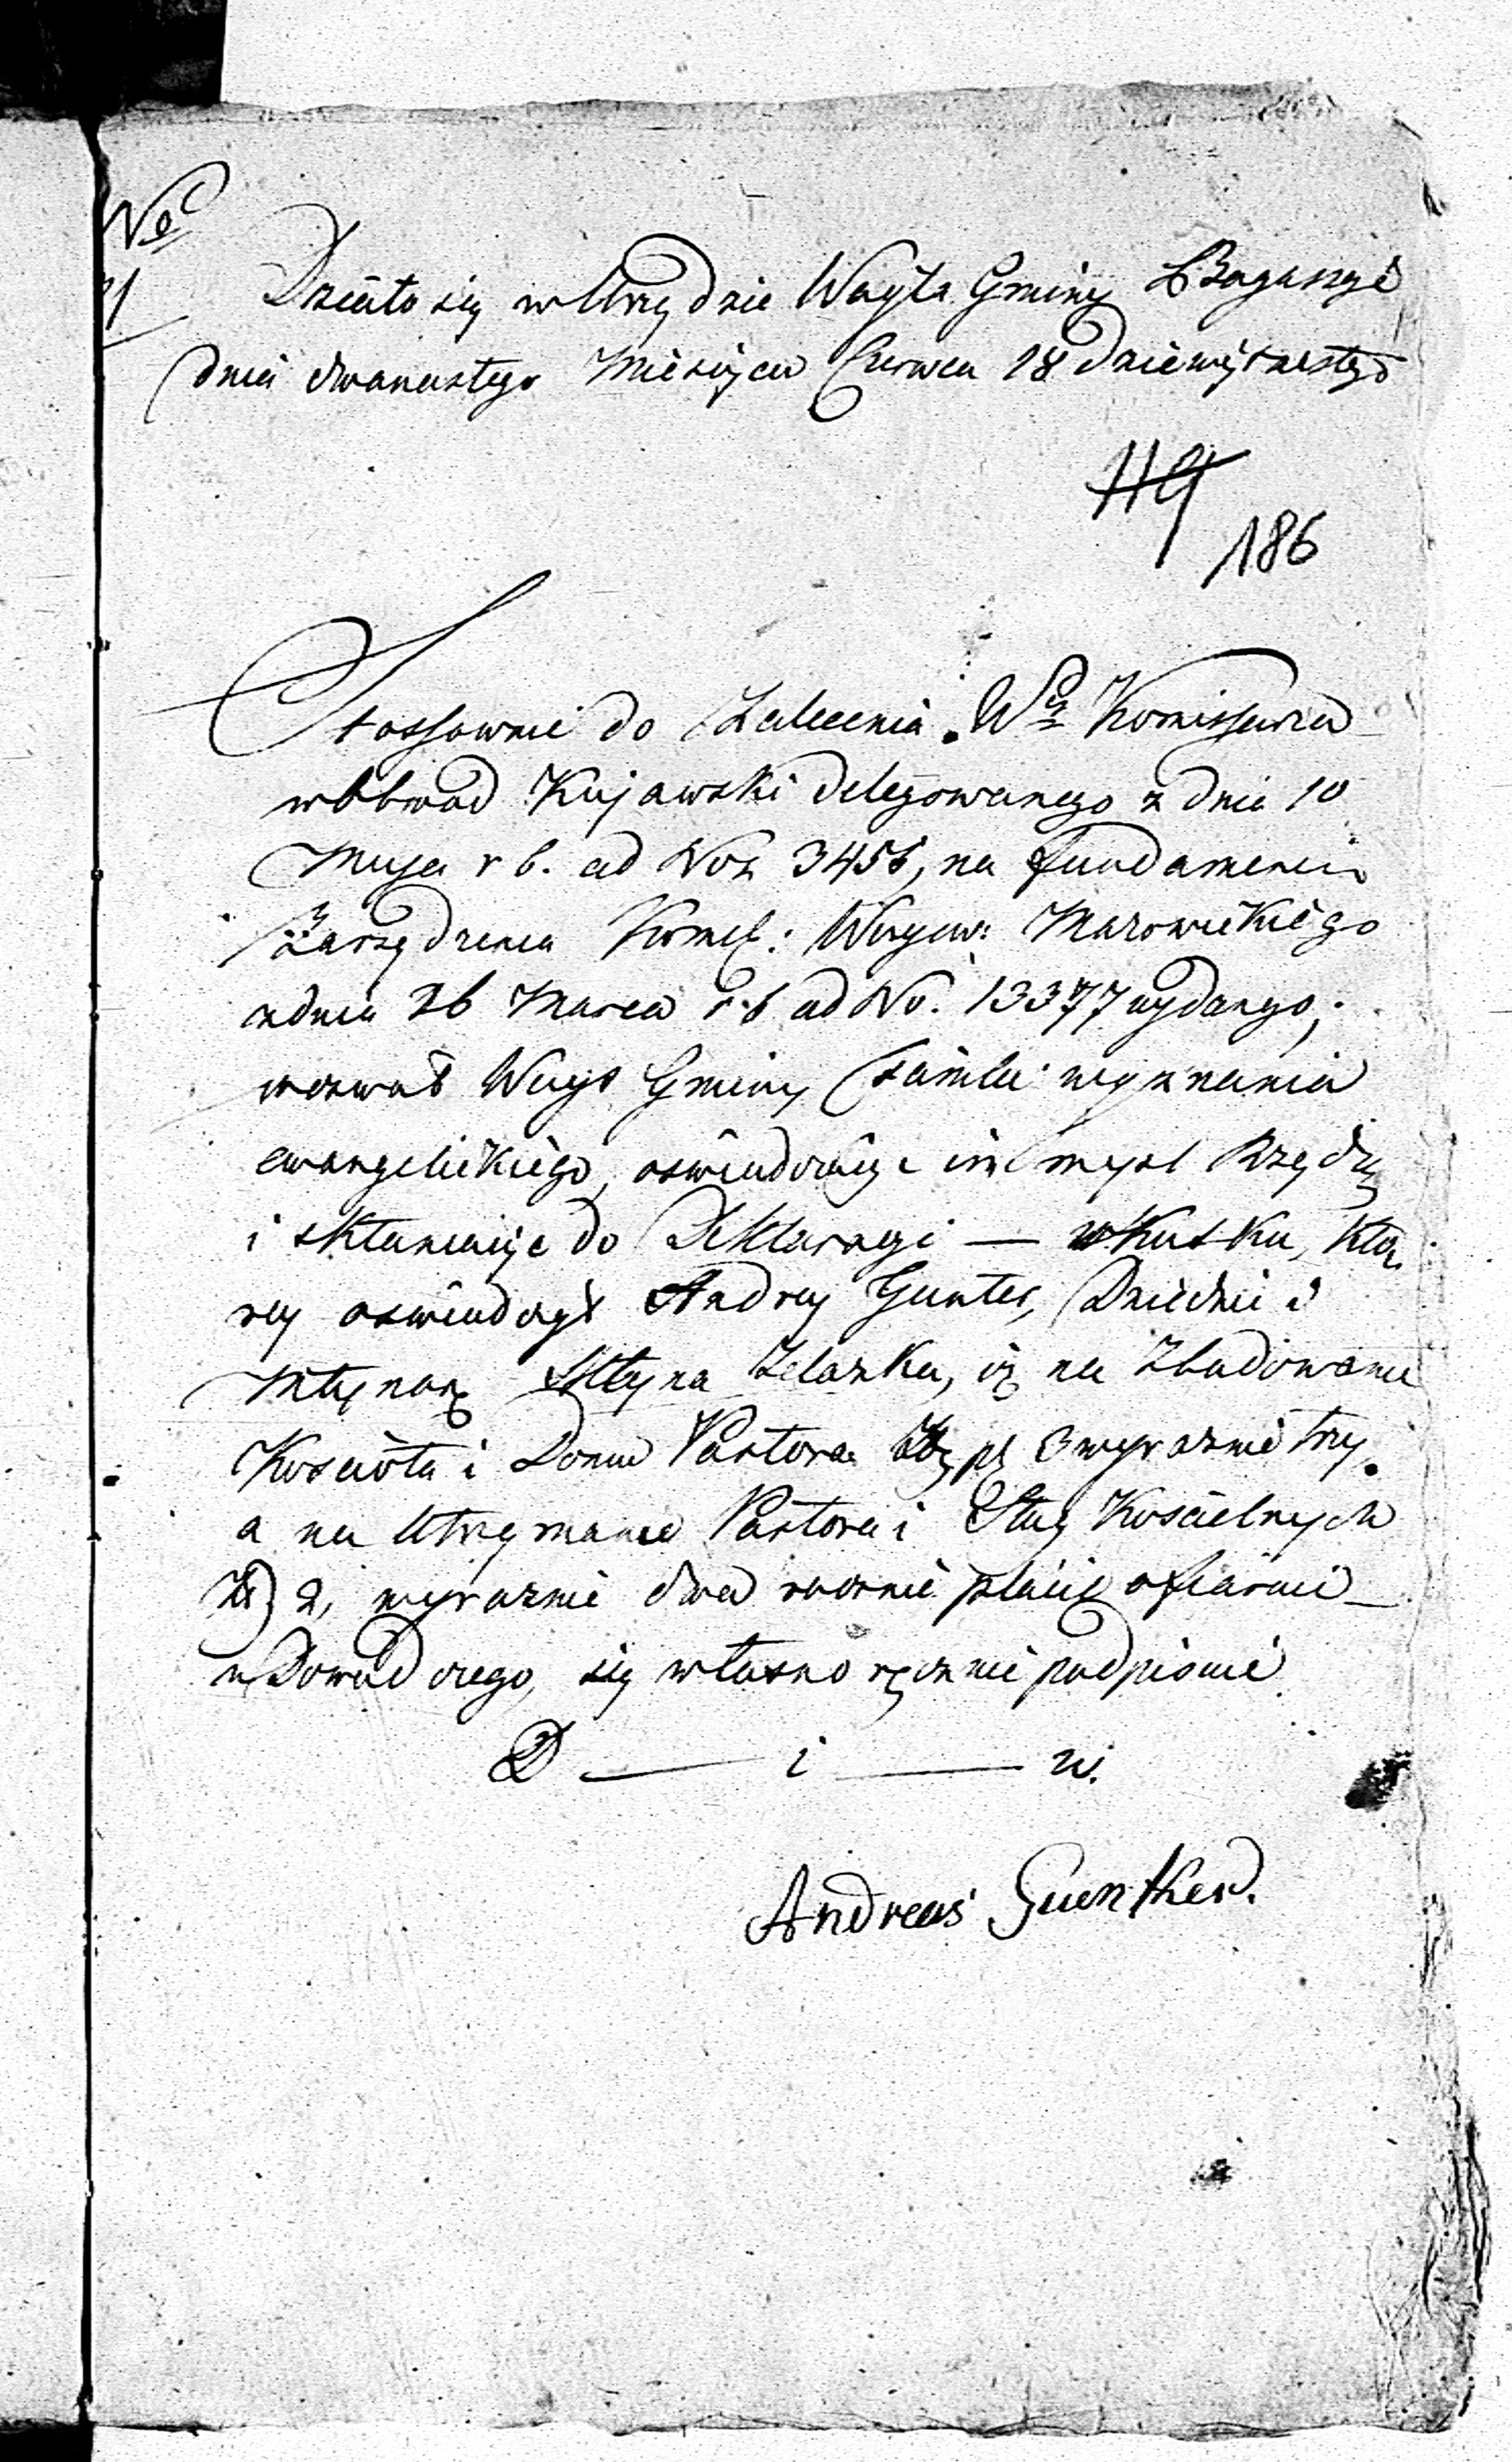 No
1
Działo się w Urzędzie Wayta Gminy
dnia dwanastego Miesiąca Czerwca 18 dziewiętnastego
119
186
Stossownie do Zalecenia Wgo Komissarza
w Obwod Kujawski delegowanego z dnia 10
Maja r b. ad Nrum 3456, na fundamencie
Zarządzenia Komss: Wojew: Mazowieckiego
z dnia 26 Marca r. b ad No. 13377 wydanego,
wezwał Wayt Gminy wyznania
ewangelickiego, oświadczaiąc im mysl Rządu
i skłaniaiąc do Deklaracyi — w skutku, któ
rey oswiadczył Andrzy Gunter, Dziedzic i
Młynarz Młyna Zelazka, iż na Zbudowanie
Kościoła i Domu Pastora Złp 3 wyraznie trzy.
a na Utrzymanie Pastora i Sług Koscielnych
Zł 2, wyraznie dwa rocznie płacić ofiaruie
w Dowod czego, się własno ręcznie podpisuie
D — i — w.
Andreas Gunther.